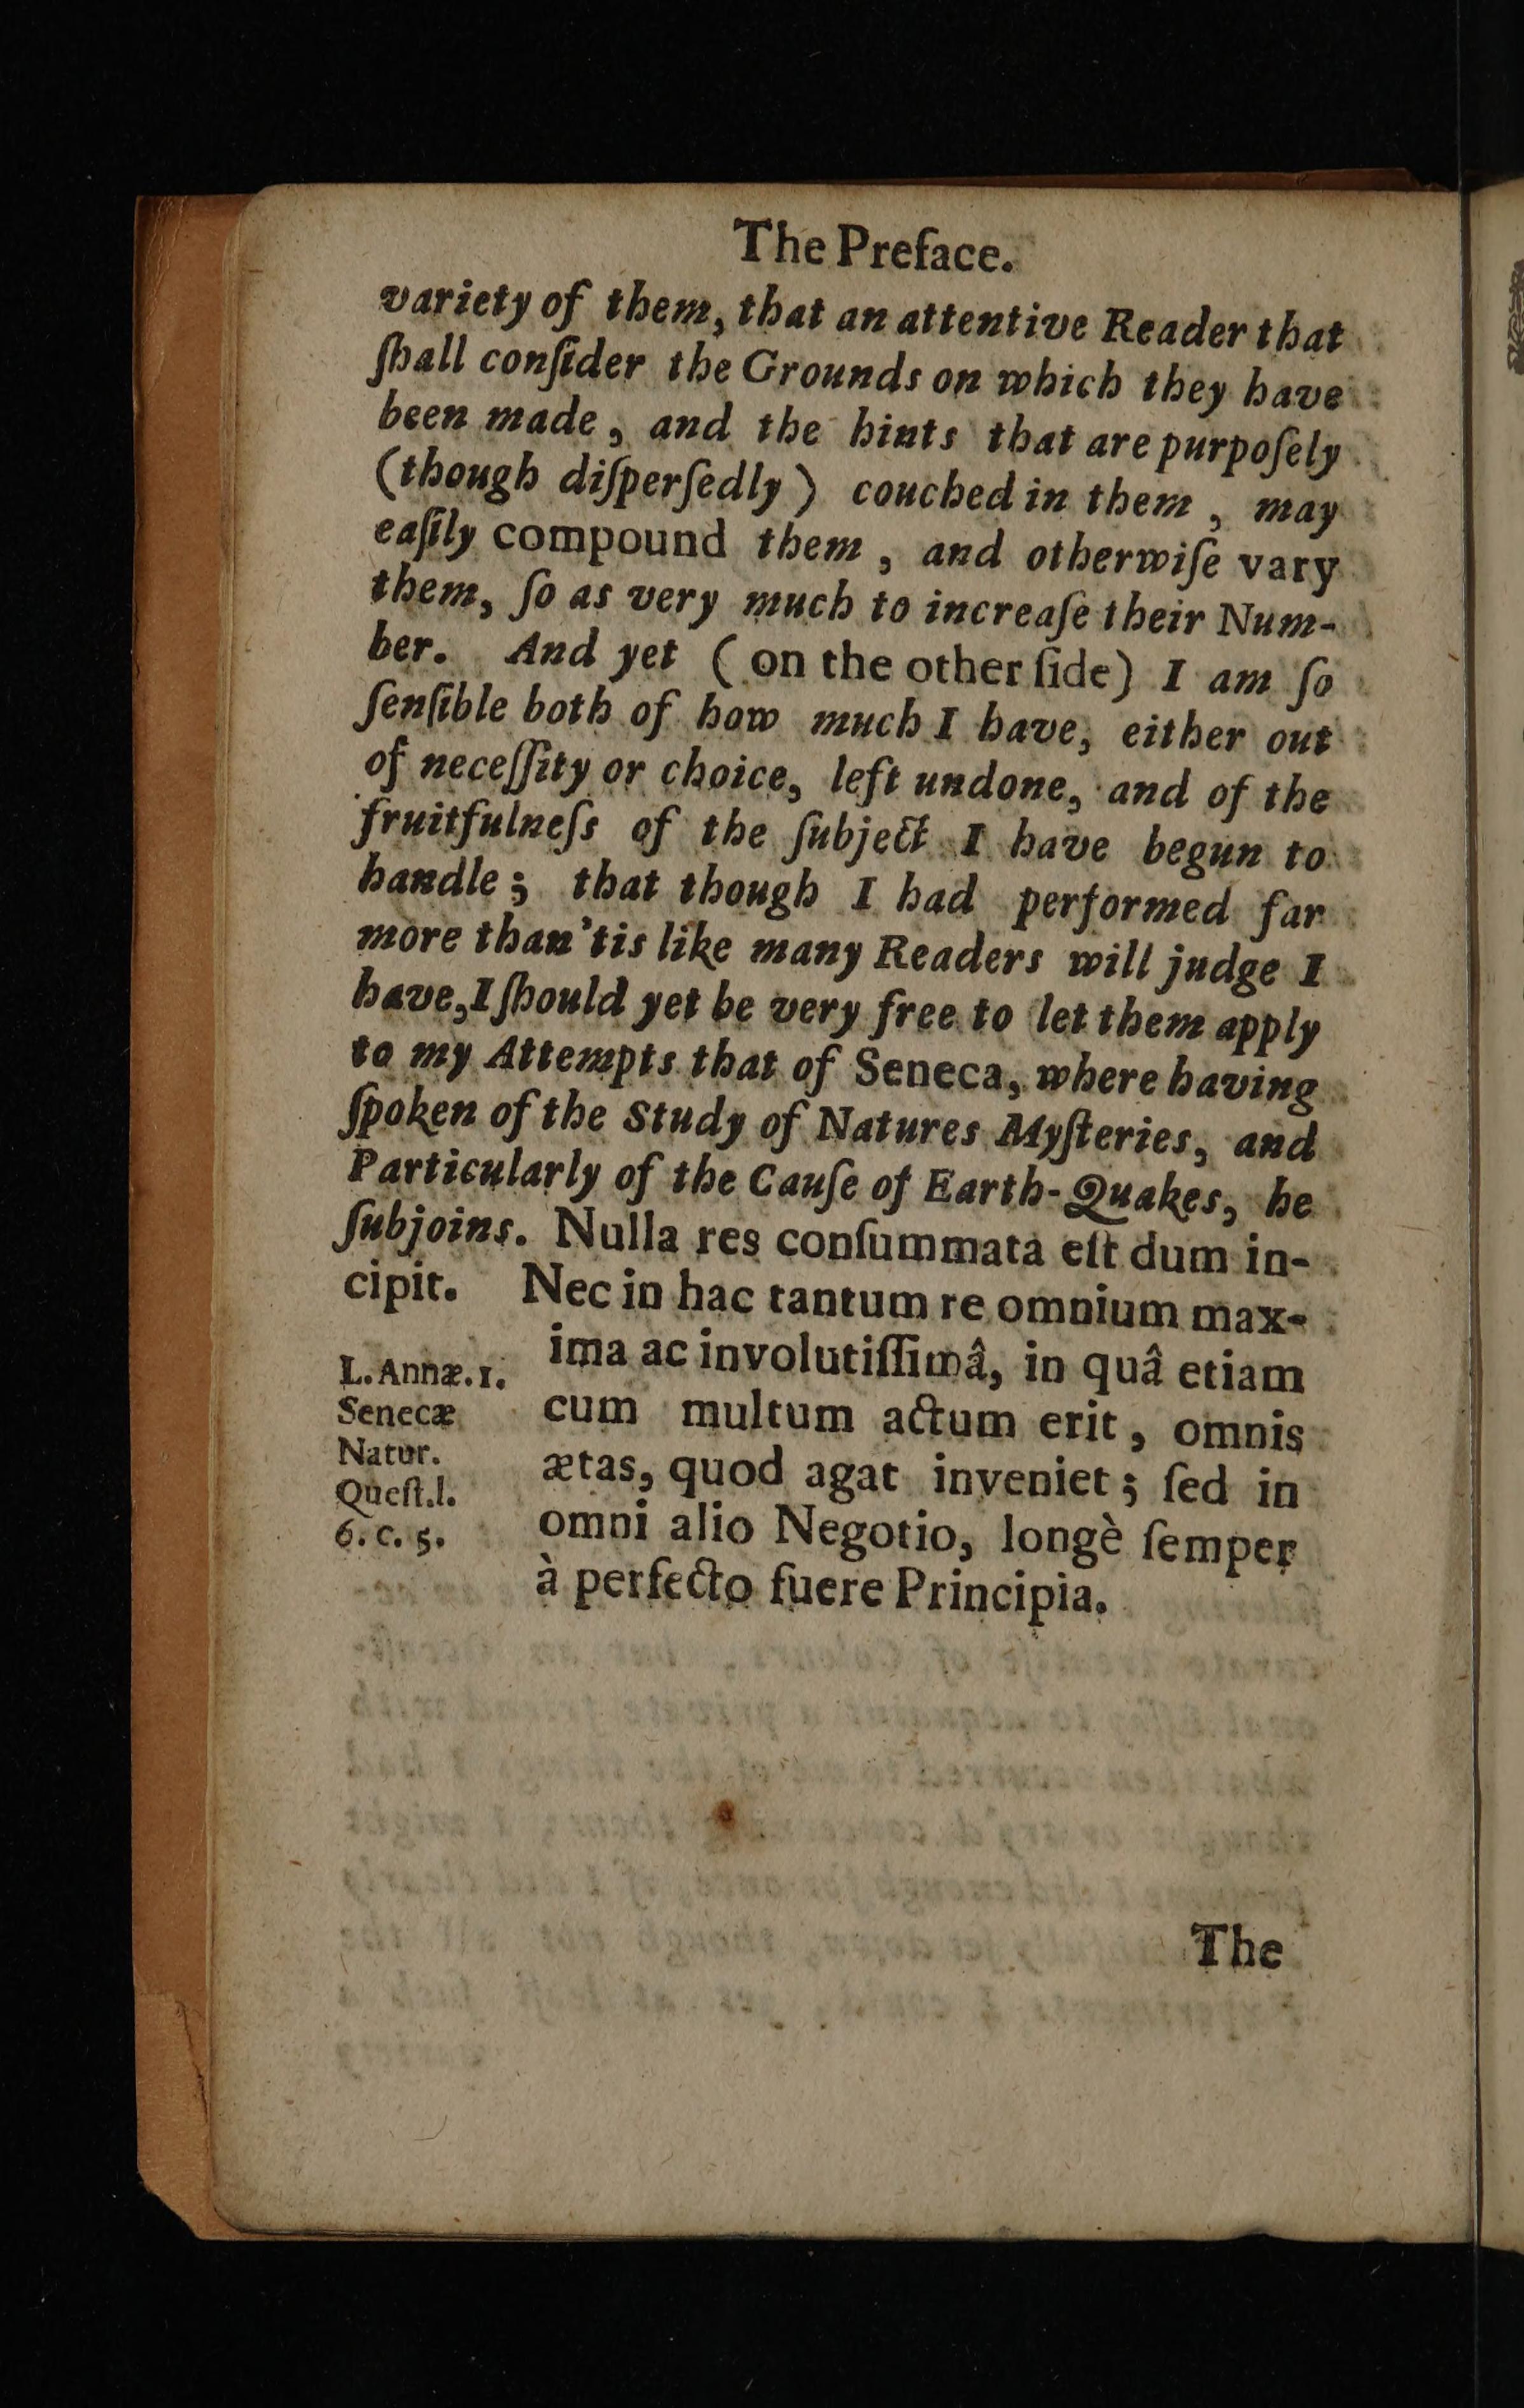 The Preface.
variety of them, that an attentive Reader that
ſhall conſider the Grounds on which they have
been made, and the hints that are purpoſely
(though diſperſedly) couched in them, may
eaſily compound them, and otherwiſe vary
them, ſo as very much to increaſe their Num-
ber. And yet (on the other ſide) I am ſo
ſenſible both of how much I have, either out
of neceſſity or choice, left undone, and of the
fruitfulneſs of the ſubject I have begun to
handle; that though I had performed far
more than 'tis like many Readers will judge I
have, I ſhould yet be very free to let them apply
to my Attempts that of Seneca, where having
ſpoken of the Study of Natures Myſteries, and
Particularly of the Cauſe of Earth-Quakes, he
ſubjoins. Nulla res conſummata eſt dum in-
cipit. Nec in hac tantum re omnium max-
ima ac involutiſſimâ, in quâ etiam
cum multum actum erit, omnis
ætas, quod agat inveniet; ſed in
omni alio Negotio, longè ſemper
à perfecto fuere Principia.
L. Annæ. 1.
Senecæ
Natur.
Queſt. l.
6. c. 5.
The